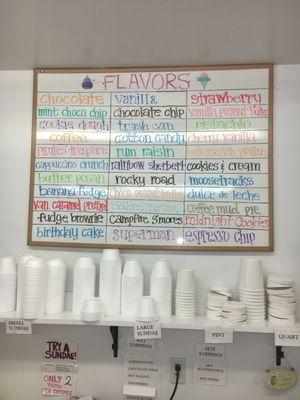 FLAVORS
chocolate vanilla strawberry
mint choco chip chocolate chip vanilla peanut butter
cookie dough trash can pistachio
coffee cotton candy cherry vanilla
pirates treasure rum raisin
cappuccino crunch rainbow sherbert cookies & cream
butter pecan rocky road moosetracks
banana fudge choco peanut butter dulce de leche
van caramel pretzel coffee mud pie
fudge brownie campfire s'mores midnight cookies
birthday cake superman espresso chip
SMALL SUNDAE
LARGE SUNDAE
PINT
QUART
TRY A SUNDAE!
WET TOPPINGS
HOT TOPPINGS
ONLY 2